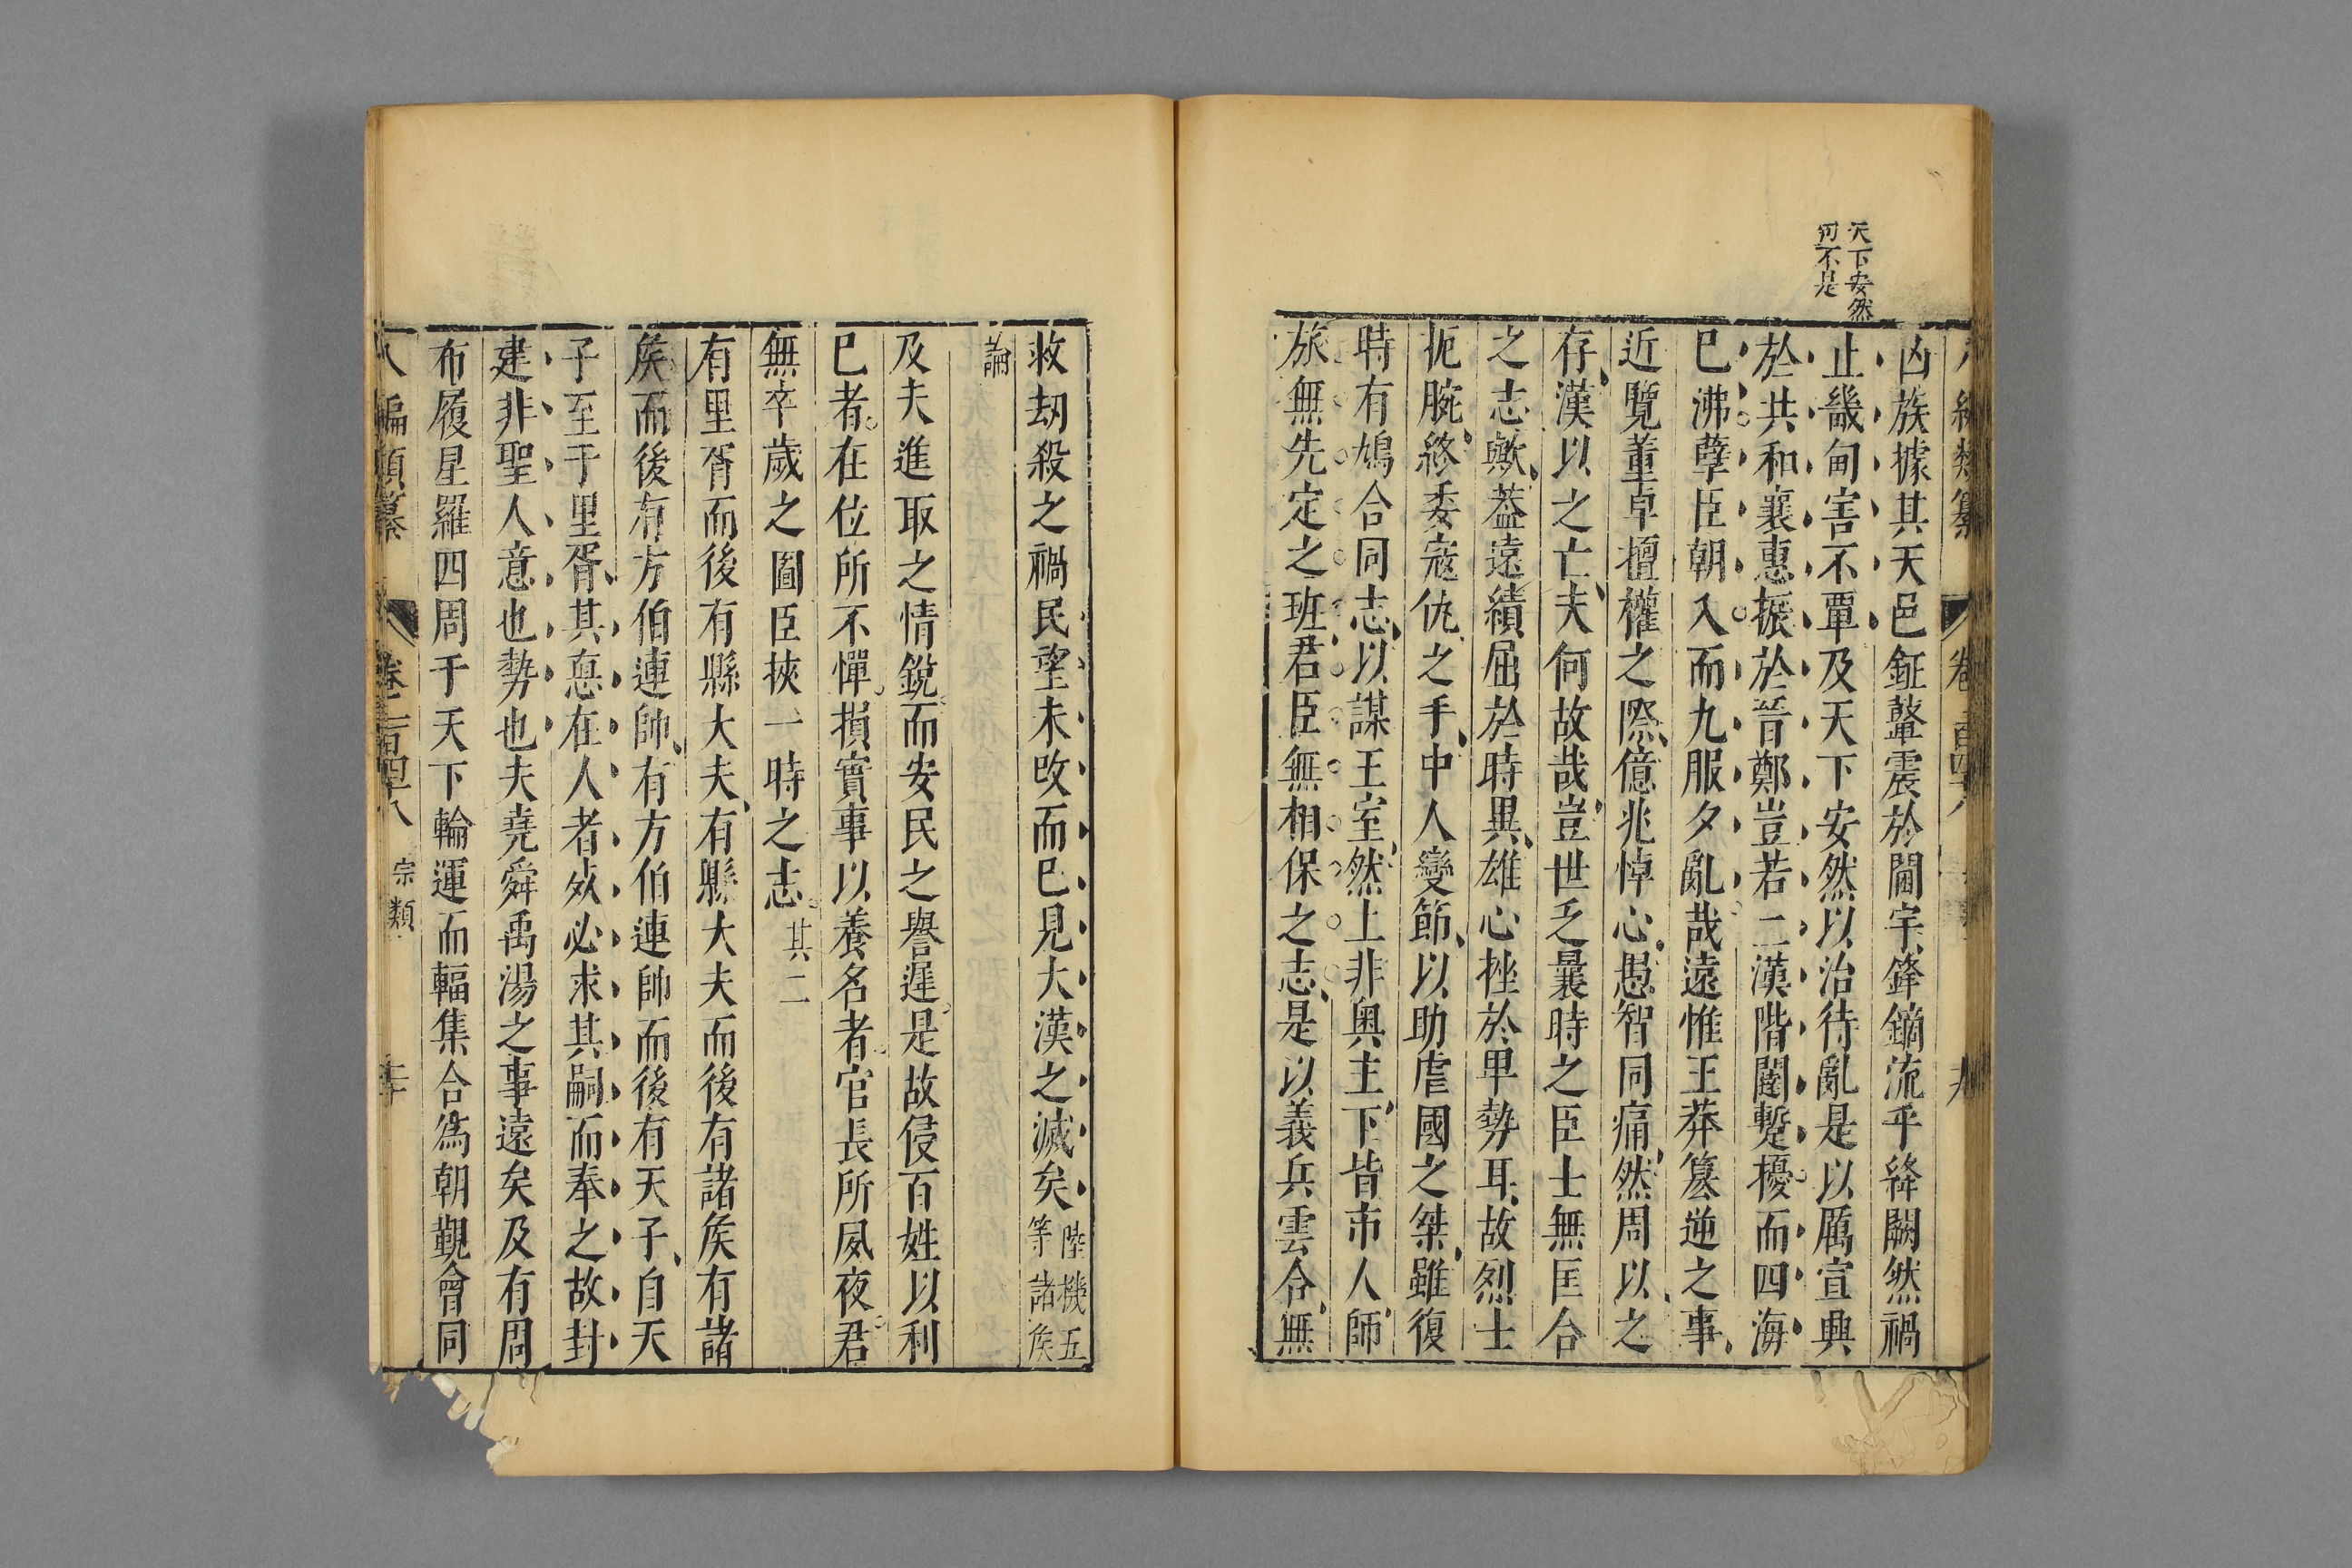 天下安然
何不是
八編類纂 卷一百四十八 九
凶族據其天邑鉦鼙震於閫宇鋒鏑流乎絳闕然禍
止畿甸害不覃及天下安然以治待亂是以厲宣興
於共和襄惠振於晉鄭豈若二漢階闥蹔擾而四海
已沸孽臣朝入而九服夕亂哉遠惟王莽篡逆之事
近覽董卓擅權之際億兆悼心愚智同痛然周以之
存漢以之亡夫何故哉豈世乏曩時之臣士無匡合
之志歟葢遠績屈於時異雄心挫於卑勢耳故烈士
扼腕終委寇仇之手中人變節以助虐國之桀雖復
時有鳩合同志以謀王室然上非奥主下皆市人師
旅無先定之班君臣無相保之志是以義兵雲合無
救劫殺之禍民望未攺而巳見大漢之滅矣陸機五
等諸矦
論
及夫進取之情銳而安民之譽遲是故侵百姓以利
已者在位所不憚損實事以養名者官長所夙夜君
無卒歲之圖臣挾一時之志其二
有里胥而後有縣大夫有縣大夫而後有諸矦有諸
矦而後有方伯連帥有方伯連帥而後有天子自天
子至于里胥其悳在人者𣦸必求其嗣而奉之故封
建非聖人意也勢也夫堯舜禹湯之事遠矣及有周
布履星羅四周于天下輪運而輻集合為朝覲會同
八編類纂 卷一百四十八 宗類 二十